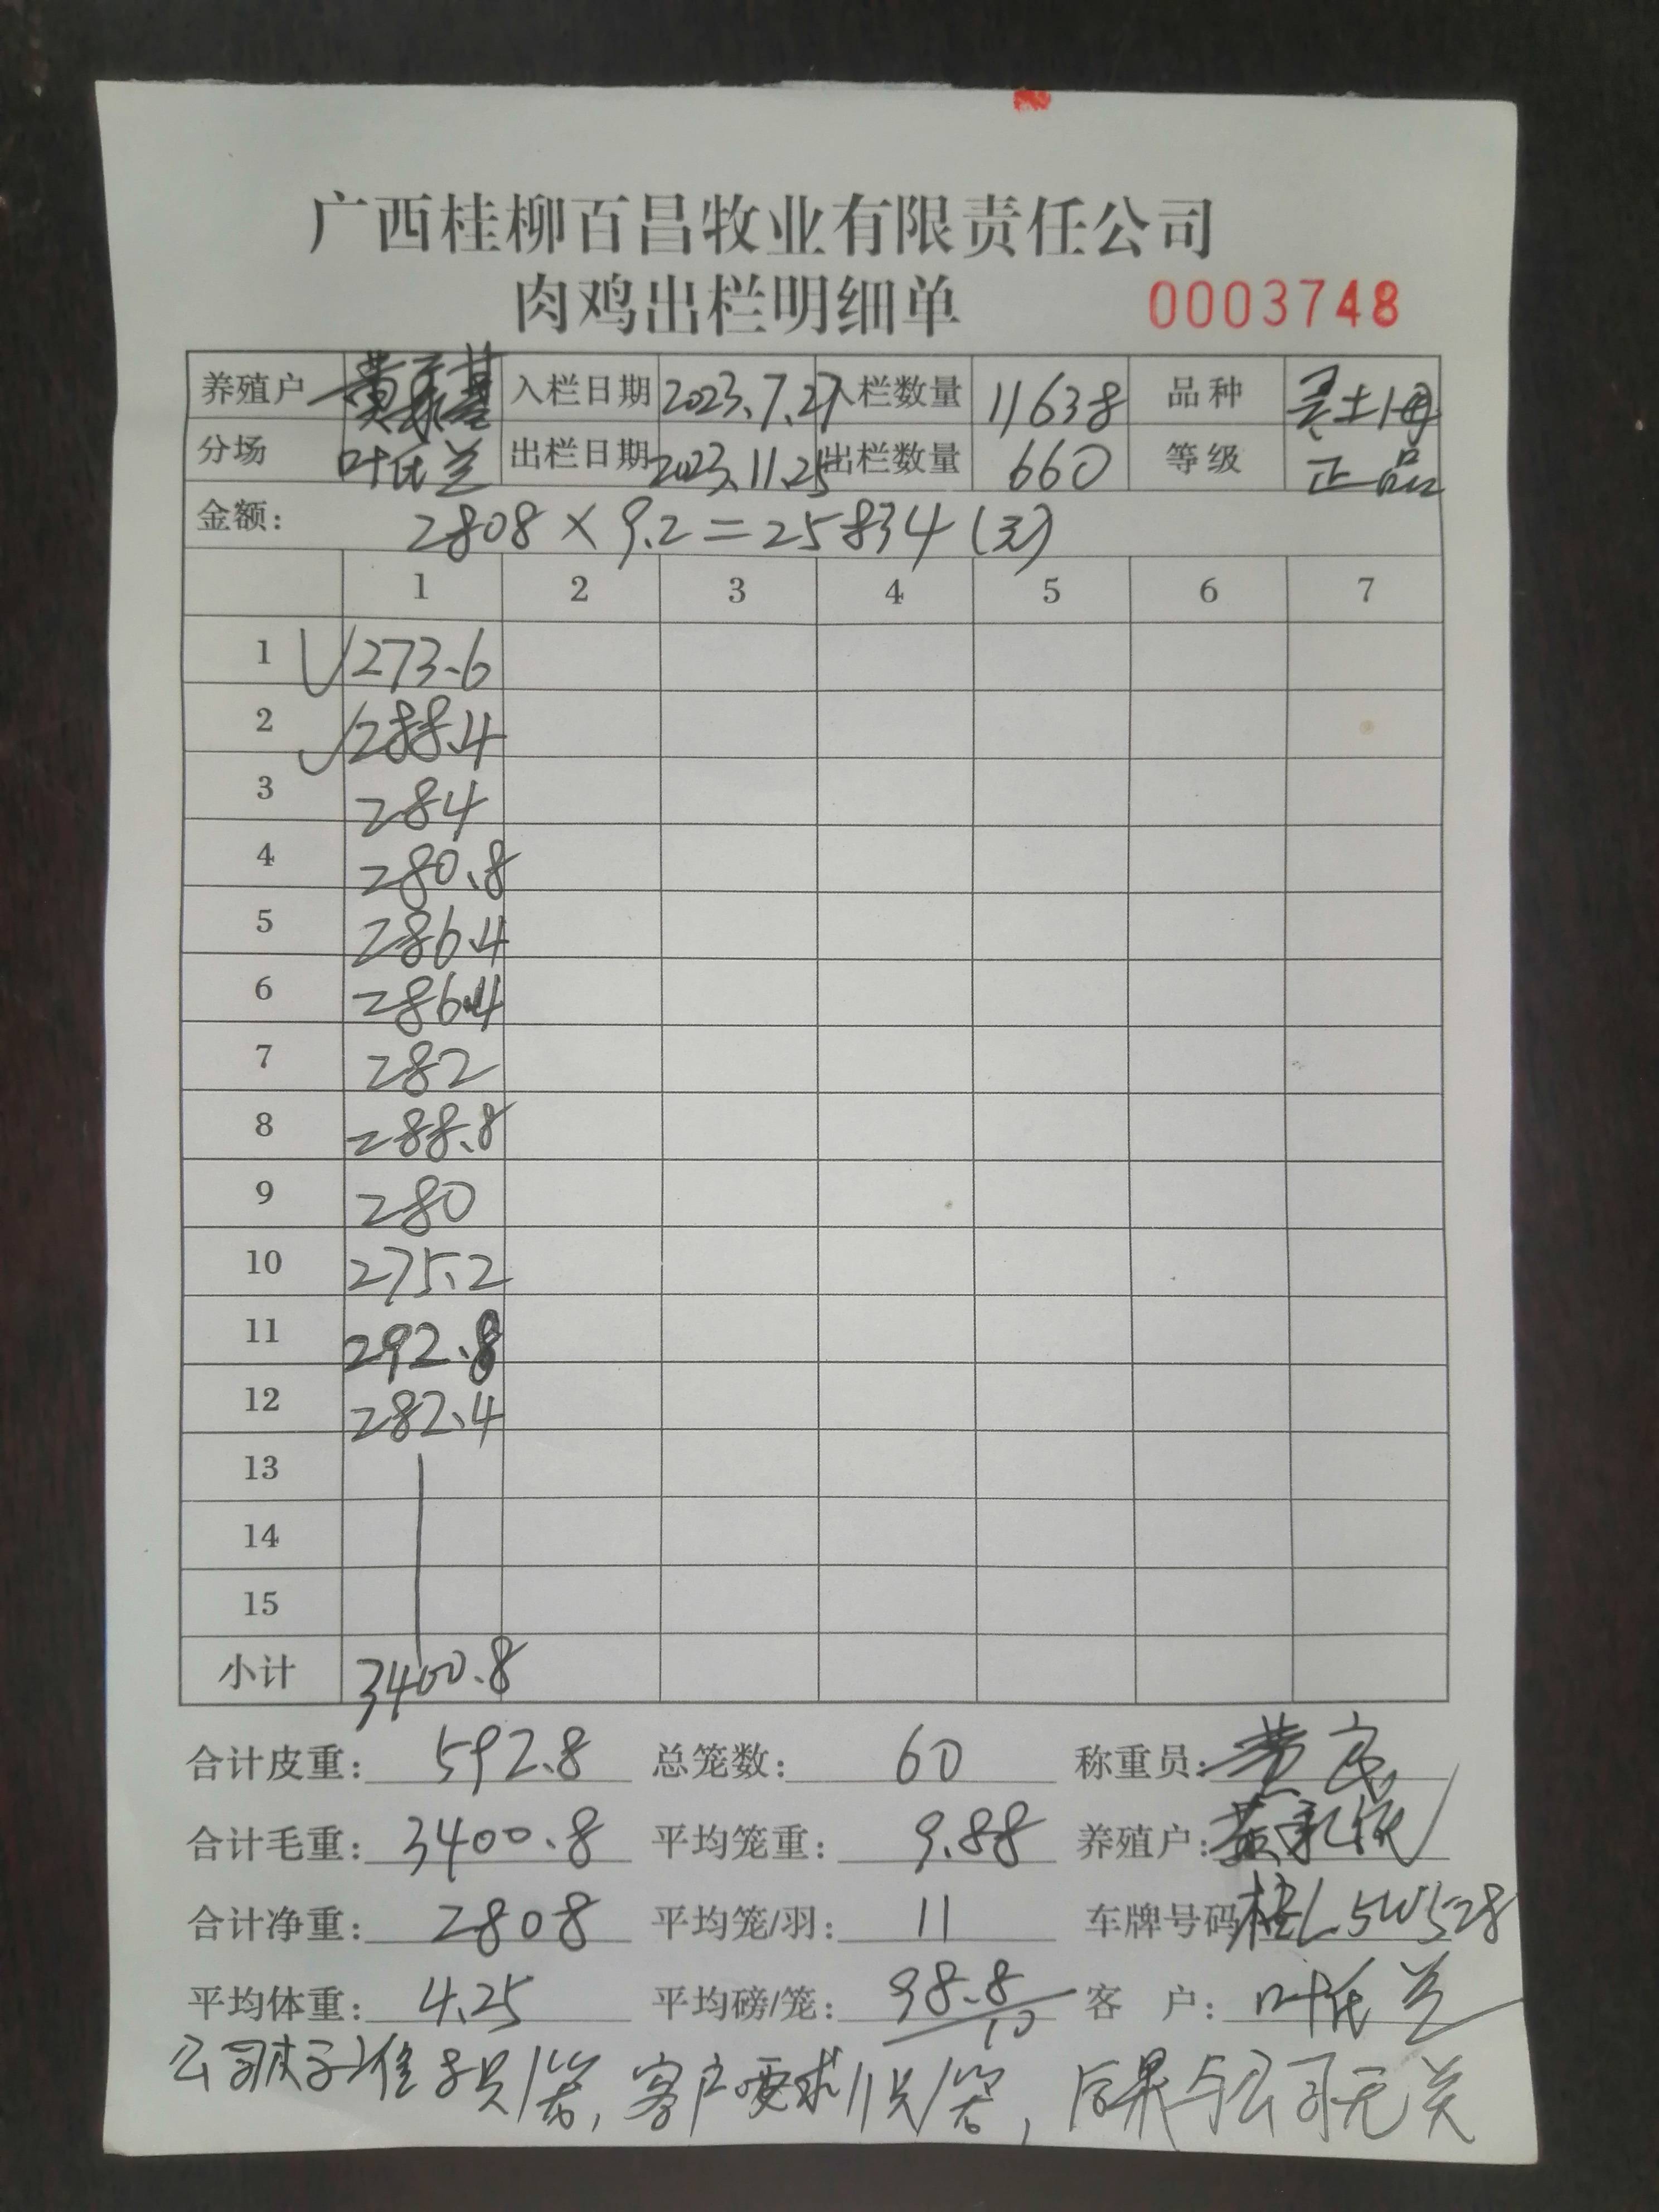 广西桂柳百昌牧业有限责任公司
肉鸡出栏明细单 0003748
养殖户 入栏日期 2023.7.27 入栏数量 11638 品种 土1母
分场 叶氏兰 出栏日期 2023.11.25 出栏数量 660 等级 正品
金额: 2808×9.2=25834(元)
1 2 3 4 5 6 7
1 273.6
2 288.4
3 284
4 280.8
5 286.4
6 286.4
7 282
8 288.8
9 280
10 275.2
11 292.8
12 282.4
13
14
15
小计 3400.8
合计皮重: 592.8 总笼数: 60 称重员: 黄
合计毛重: 3400.8 平均笼重: 9.88 养殖户: 黄
合计净重: 2808 平均笼/羽: 11 车牌号码 桂L5W528
平均体重: 4.25 平均磅/笼: 98.8/10 客户: 叶氏兰
公司 准 只/笼,客户要求11只/笼,后果与公司无关